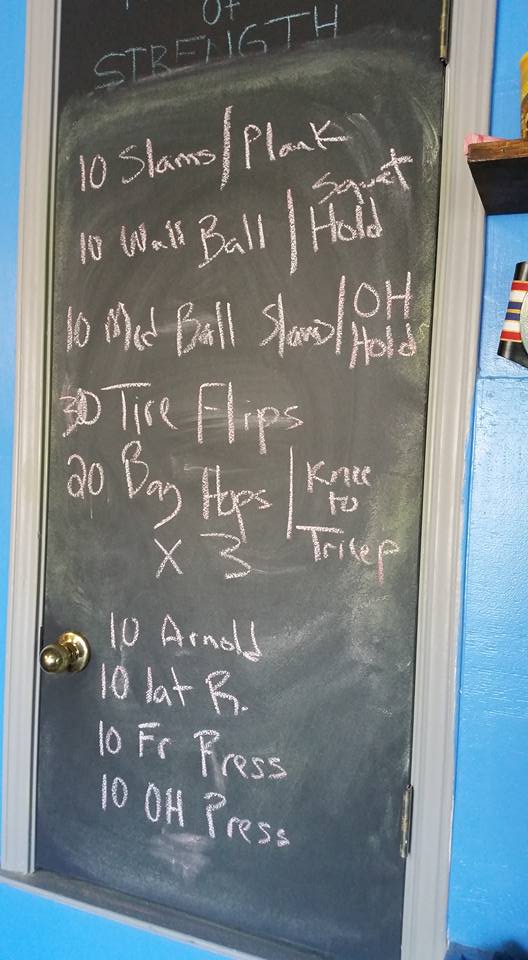 of
STRENGTH
10 Slams / Plank
10 Wall Ball / Squat Hold
10 Med Ball Slams / OH Hold
30 Tire Flips
20 Bag Hops / Knee to Tricep
X 3
10 Arnold
10 lat R.
10 Fr Press
10 OH Press